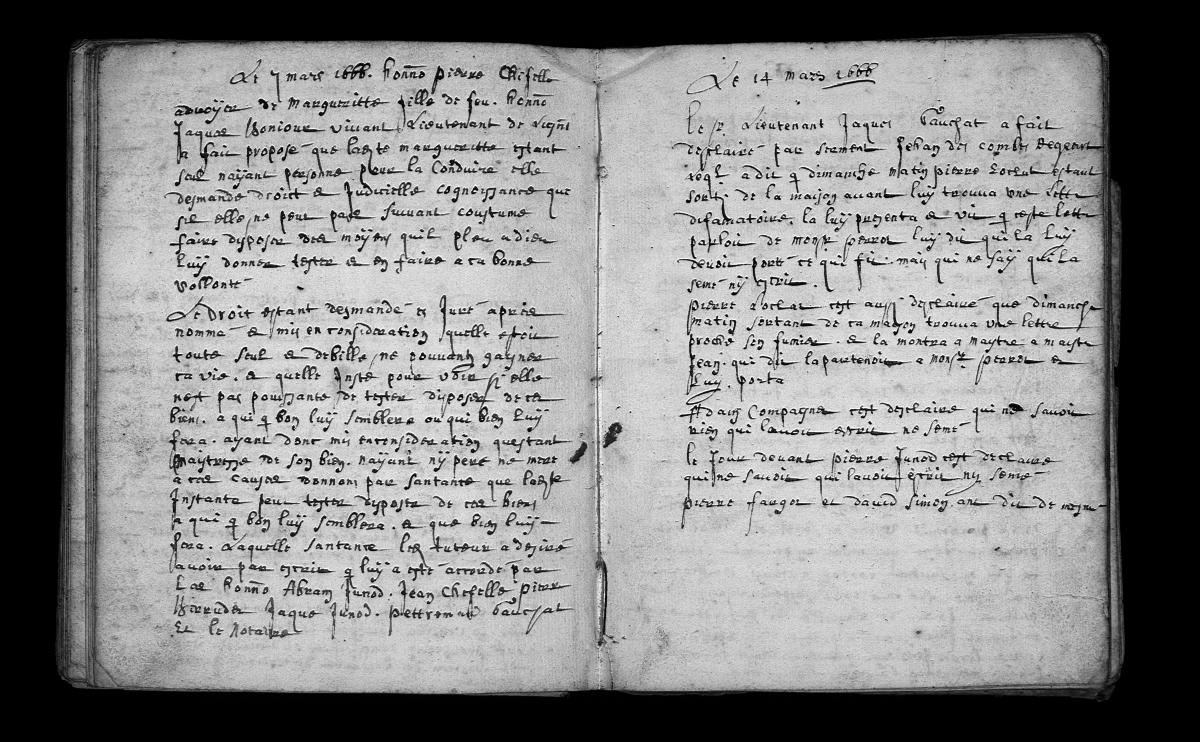 Le 7 mars 1666. honno pierre Chiffelle
advoyer de margueritte fille de feu. honno
Jaques Bonjour vivant Lieutenant deLigni
a fait proposé que ladte margueritte estant
seul nayant personne pour la Conduire elle
desmande droict & Judicielle cognoissance que
sie elle ne peut pase suivant coustume
faire disposer dee moyens quil pleu a dieu
luÿ donner tester & en faire a ca bonne
vollonté
Le Droit estant desmandé et Juré apres
nommé & mis en consideration quelle estoit
toute seul & debille ne pouvant gaigner
ca vie. & quelle Insté pour voir si elle
nest pas puissante de tester disposer de ces
biens. a qui q bon luÿ semblera ou qui bien luÿ
fera. ayant donc mis enconsideration questant
maytresse de son bien. naÿant nÿ pere ne mere
a ces causes donnons par santance que ladte
Instante peut tester disposer de ces biens
a qui q bon luÿ semblera. & que bien luÿ
fera. Laquelle santance led tuteur a desiré
avoir par escrit q luÿ a esté accordé par
Les honno Abram Junod. Jean Chiffelle pierr
Jaque Junod. pettremand Gauchat
Et le Notaire
Le 14 mars 1666
le sr. Lieutenant Jaques Gauchat a fait
desclairé par serment Jehan des combes
a dit q dimanche matin pierre Loclat estant
sorti de la maison avant luÿ trouva une lettr
difamatoire. la luÿ presenta & vit q ceste lettr
parloit de monsr perrot luÿ dit qui la luÿ
devoit porté ce qui fit. mais qui ne saÿ qui la
semé nÿ escrit.
pierre Loclat cest aussi desclairé que dimanche
matin sortant de ca maison trouva une lettre
proche son fumier. & la montra a maytre a maistr
Jean. qui dit lapartenoit a monsr. perrot &
luÿ. porta
Adam Compagnet cest desclairé qui ne savoir
rien qui lavoit escrit ne semé
le Jour devant pierre Junod cest declaire
qui ne savoit qui lavoit escrit nÿ semé
pierre fargot et david Simon ont dit de mesme